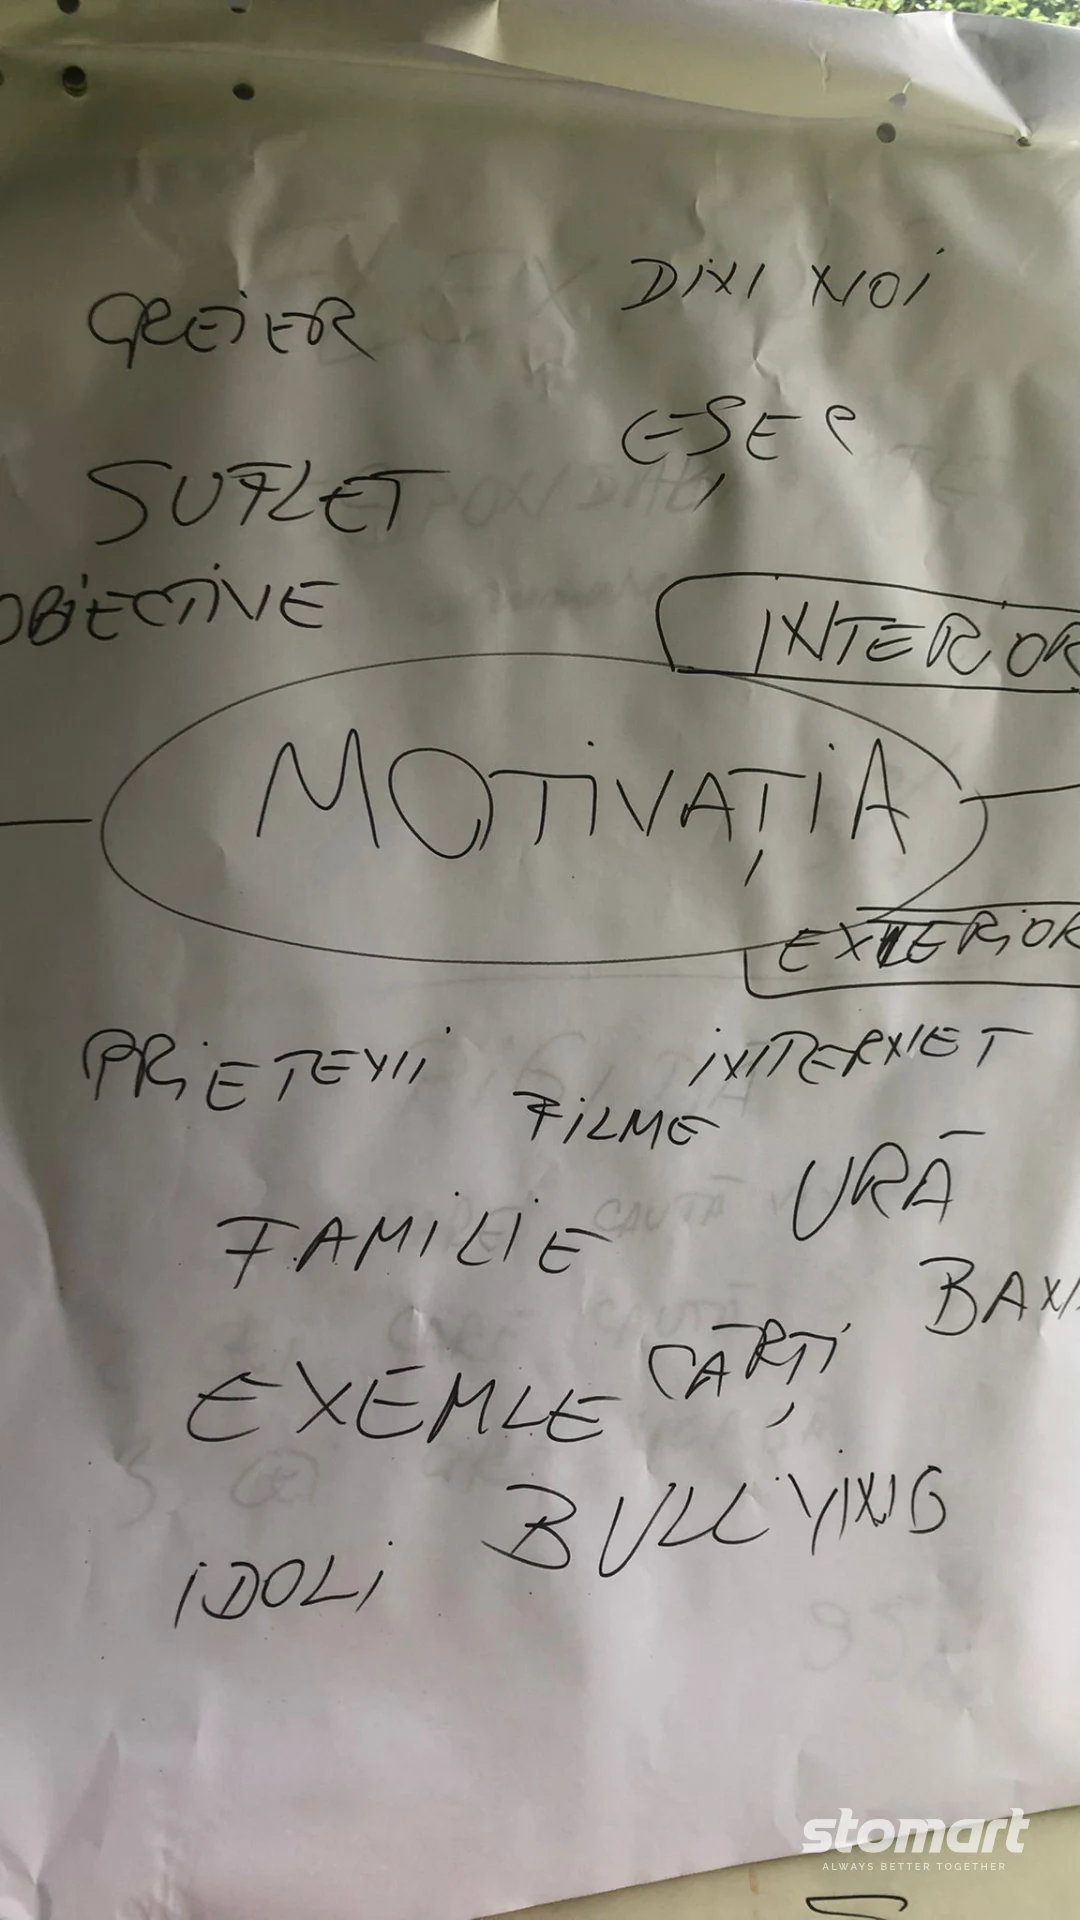 DIN NOI
CREIER
EȘEC
SUFLET
OBIECTIVE
INTERIOR
MOTIVAȚIA
EXTERIOR
PRIETENII
INTERNET
FILME
URĂ
FAMILIE
CĂRȚI
EXEMLE
BULLYING
IDOLI
stomart
ALWAYS BETTER TOGETHER